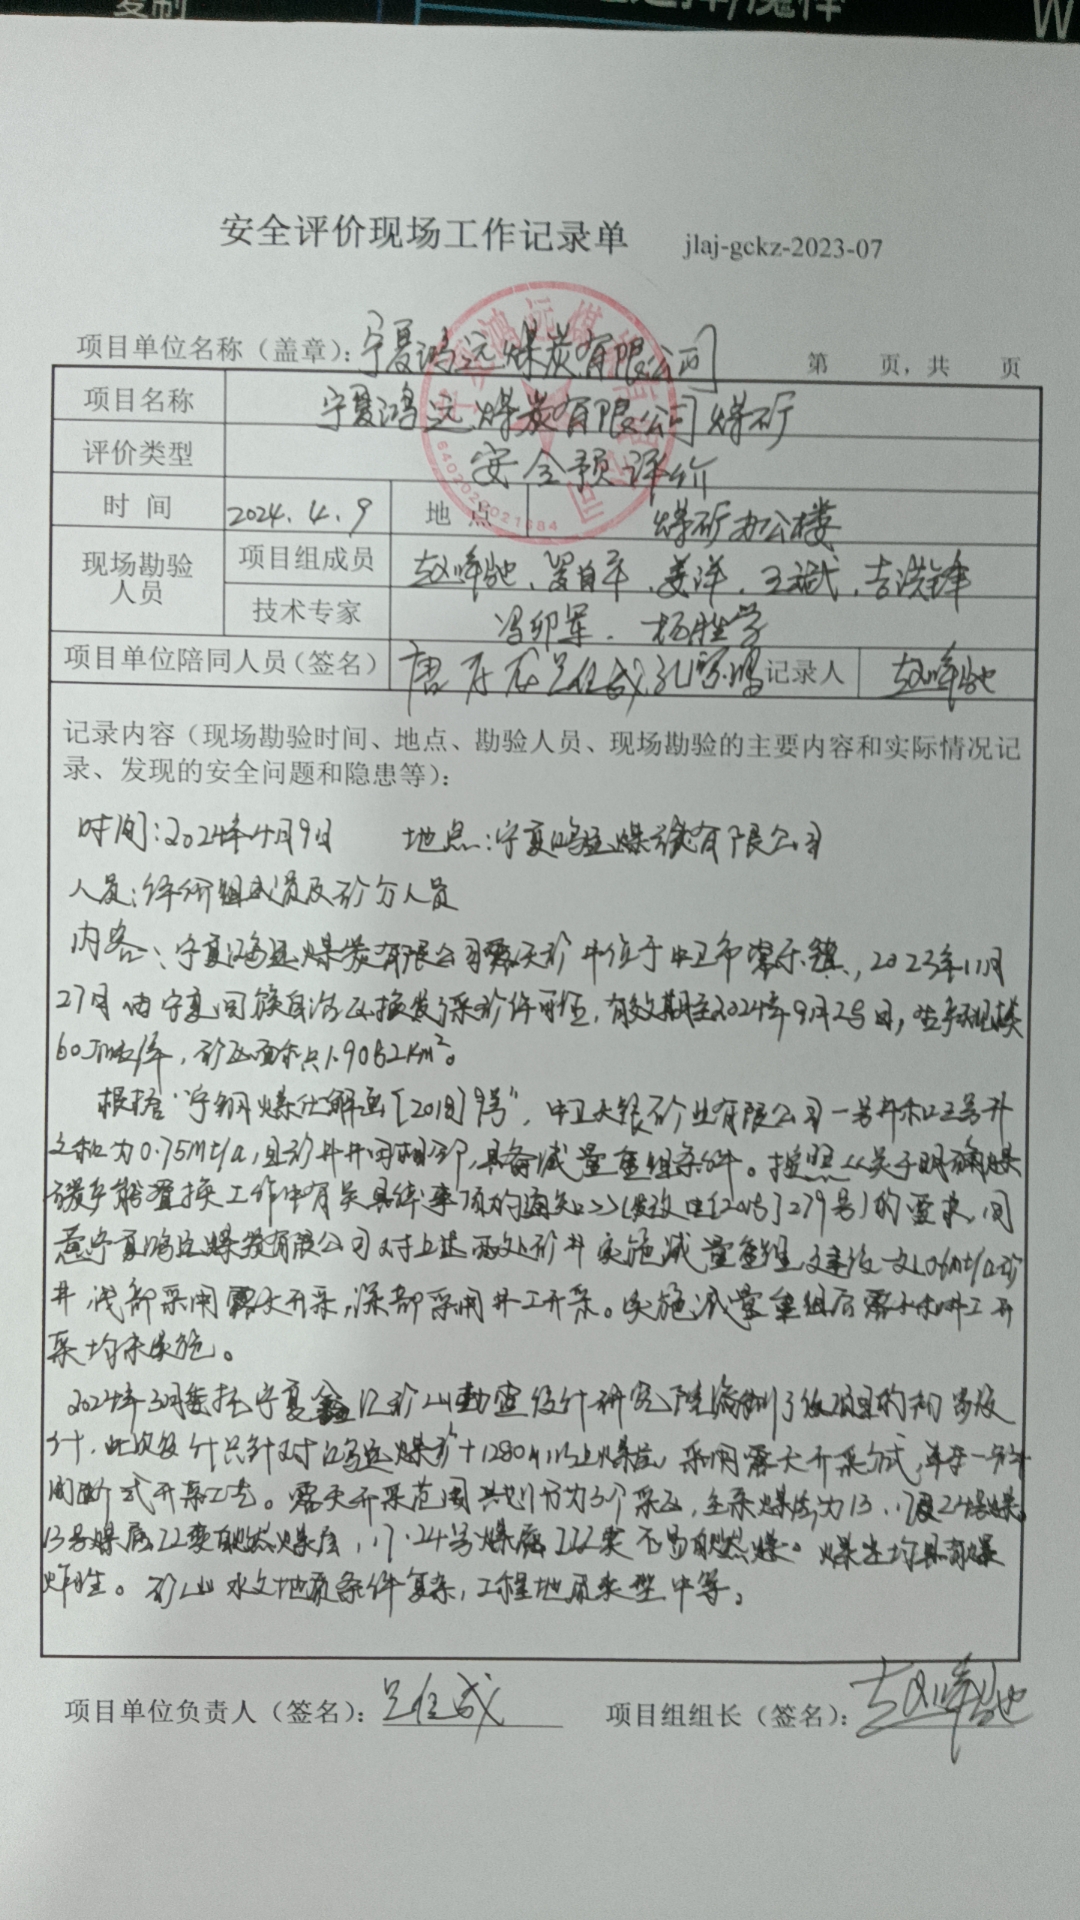 复制
W
安全评价现场工作记录单 jlaj-gckz-2023-07
项目单位名称（盖章）：宁夏鸿远煤炭有限公司 第 页，共 页
项目名称 宁夏鸿远煤炭有限公司煤矿
评价类型 安全预评价
时 间 2024.4.9 地 点 煤矿办公楼
现场勘验人员 项目组成员 赵峰驰、罗自平、姜洋、王斌、吉洪锋
技术专家 冯卯军、杨胜学
项目单位陪同人员（签名） 记录人 赵峰驰
记录内容（现场勘验时间、地点、勘验人员、现场勘验的主要内容和实际情况记
录、发现的安全问题和隐患等）：
时间：2024年4月9日 地点：宁夏鸿远煤炭有限公司
人员：评价组成员及矿方人员
内容：宁夏鸿远煤炭有限公司露天矿井位于中卫市常乐镇，2023年11月
27日由宁夏回族自治区换发了采矿许可证，有效期至2024年9月25日，生产规模
60万吨/年，矿区面积共1.9062km²。
根据“宁钢煤化解函[2018]9号”，中卫大银矿业有限公司一号井和三号井
之和为0.75Mt/a，且矿井井田相邻，具备减量重组条件。按照《关于明确煤
炭产能置换工作中有关具体事项的通知》（发改电[2017]279号）的要求，同
意宁夏鸿远煤炭有限公司对上述两处矿井实施减量重组，建设一处0.6Mt/a矿
井，浅部采用露天开采，深部采用井工开采。实施减量重组后露天和井工开
采均未实施。
2024年3月委托宁夏鑫汇矿山勘查设计研究院编制了该项目的初步设
计，此次设计只针对鸿远煤矿+1280m以上煤层，采用露天开采方式，单斗—卡车
间断式开采工艺。露天开采范围共划分为3个采区，主采煤层为13、17及24号煤。
13号煤层Ⅱ类自燃煤层，17、24号煤层Ⅲ类不易自燃煤。煤尘均具有爆
炸性。矿山水文地质条件复杂，工程地质类型中等。
项目单位负责人（签名）： 项目组组长（签名）：赵峰驰